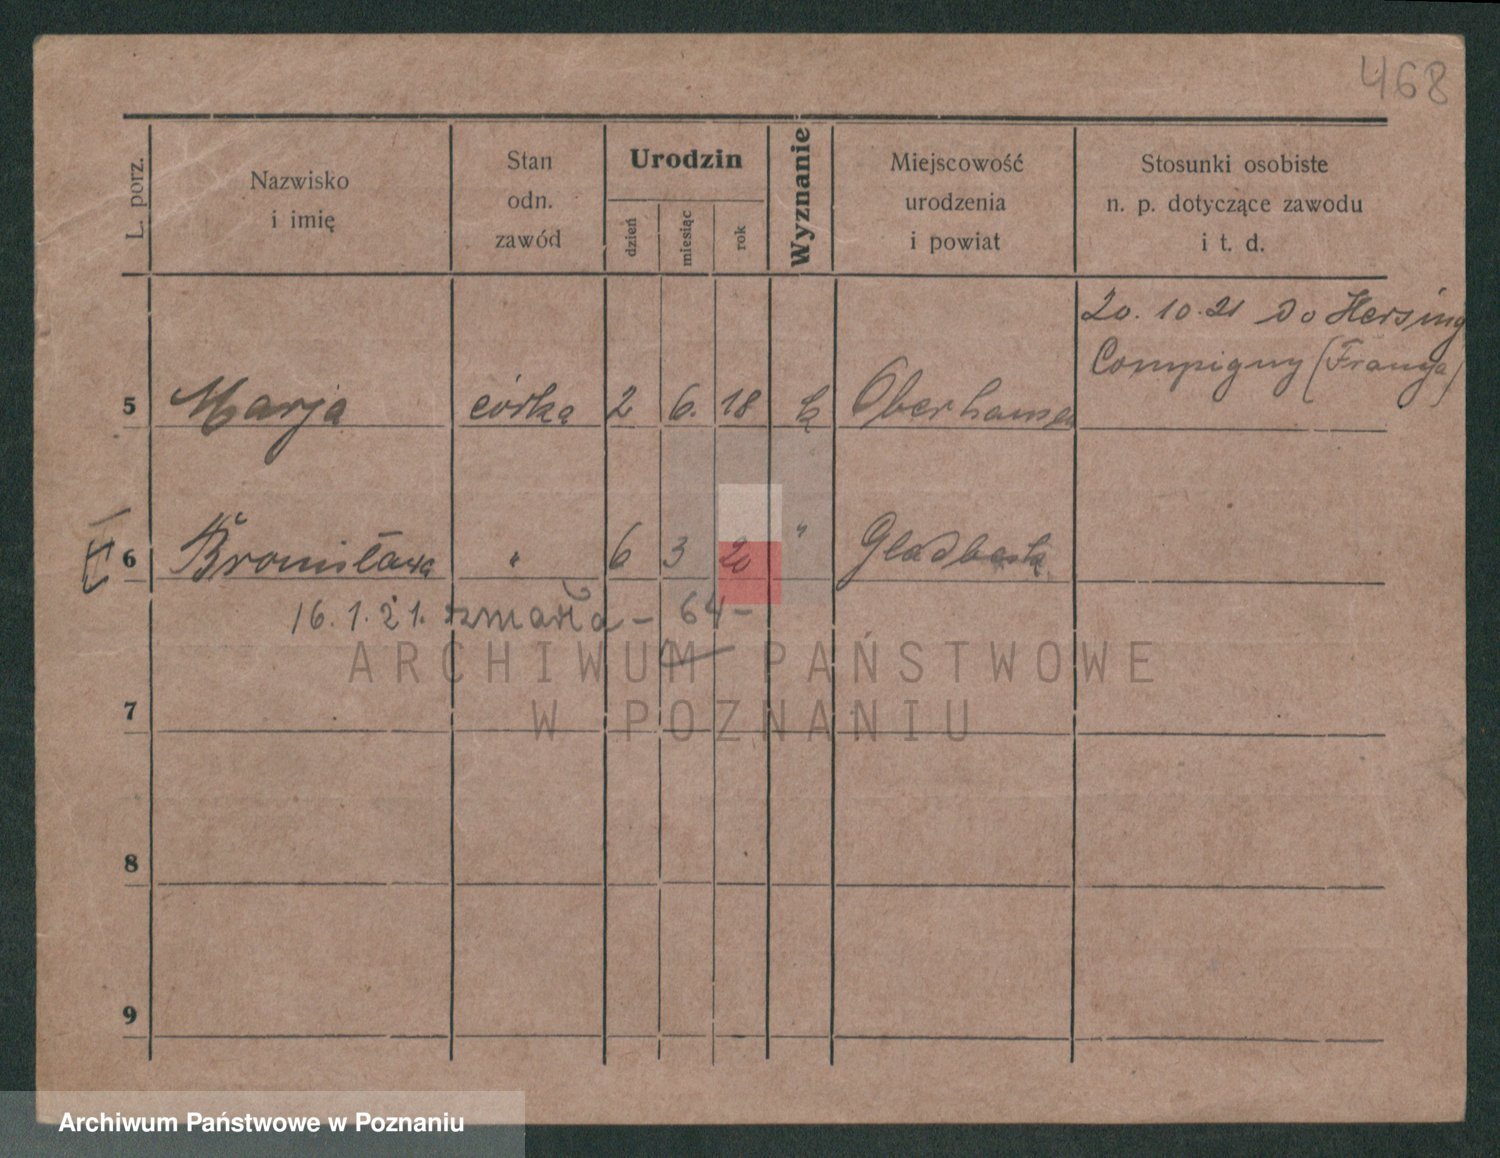 468
L. porz.
Nazwisko
i imię
Stan
odn.
zawód
Urodzin
dzień
miesiąc
rok
Wyznanie
Miejscowość
urodzenia
i powiat
Stosunki osobiste
n. p. dotyczące zawodu
i t. d.
20. 10. 21 do Hersing
Compigny (Francja)
5 Marja córka 2 6. 18 k Oberhausen
6 Bronisława " 6 3 20 " Gladbeck
16. 1. 21. zmarła - 64 -
ARCHIWUM PAŃSTWOWE
W POZNANIU
7
8
9
Archiwum Państwowe w Poznaniu